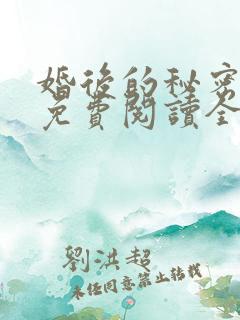 婚後的秘密
免費閱讀全
劉洪超
未经同意禁止转载